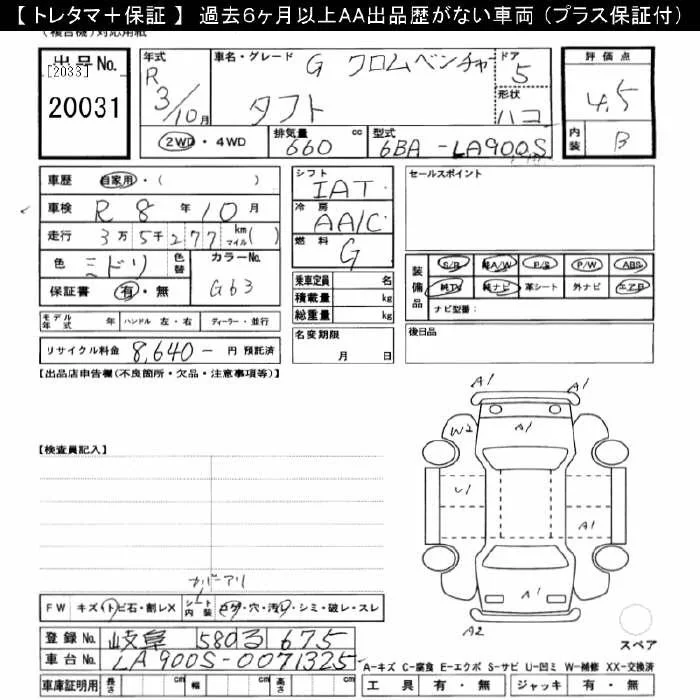 【 トレタマ＋保証 】 過去6ヶ月以上AA出品歴がない車両 (プラス保証付)
(複合機)対応用紙
出品No. [2033] 20031
年式 R 3/10月
車名・グレード G クロムベンチャー タフト
ドア 5
形状 ハコ
評価点 4.5
内装 B
2WD・4WD
排気量 660 cc
型式 6BA-LA900S
車歴 自家用・( )
車検 R 8 年 10 月
走行 3万5千277 km マイル( )
色 ミドリ 色替 カラーNo. G63
保証書 有・無
シフト IAT
冷房 AA/C
燃料 G
乗車定員 名
積載量 kg
総重量 kg
セールスポイント
装備品 S/R 純A/W P/S P/W ABS
純TV 純ナビ 革シート 外ナビ エアB
ナビ型番：
モデル年式 年 ハンドル 左・右 ディーラー・並行
名変期限 月 日
後日品
リサイクル料金 8,640- 円 預託済
【出品店申告欄(不良箇所・欠品・注意事項等)】
A1
W2 A1
【検査員記入】
U1
A1
カバーアリ
A1
FW キズ・トビ石・割レX シート内装 コゲ・穴・汚レ・シミ・破レ・スレ
A2
スペア
登録No. 岐阜 580 る 675
車台No. LA900S-0071325
A-キズ C-腐食 E-エクボ S-サビ U-凹ミ W-補修 XX-交換済
車庫証明用 長さ cm 幅 cm 高さ cm
工具 有・無 ジャッキ 有・無